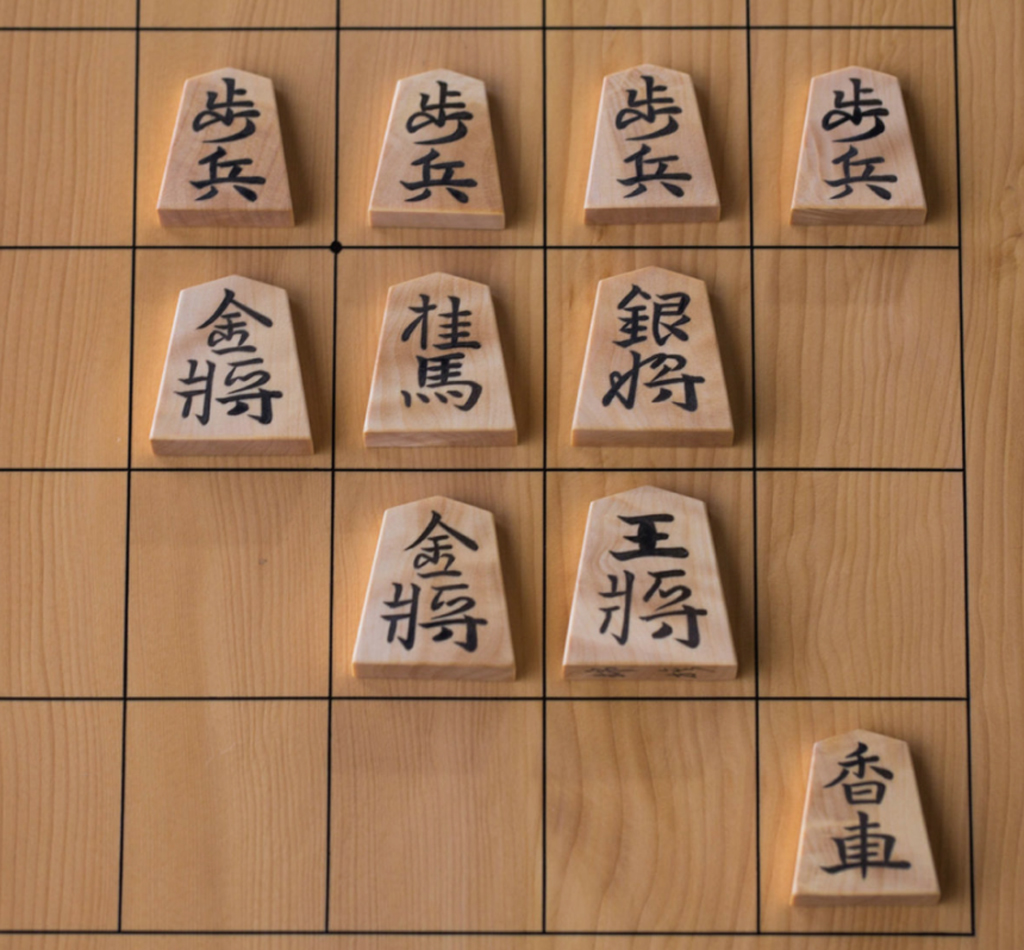 歩兵
歩兵
歩兵
歩兵
金將
桂馬
銀将
金將
王將
香車